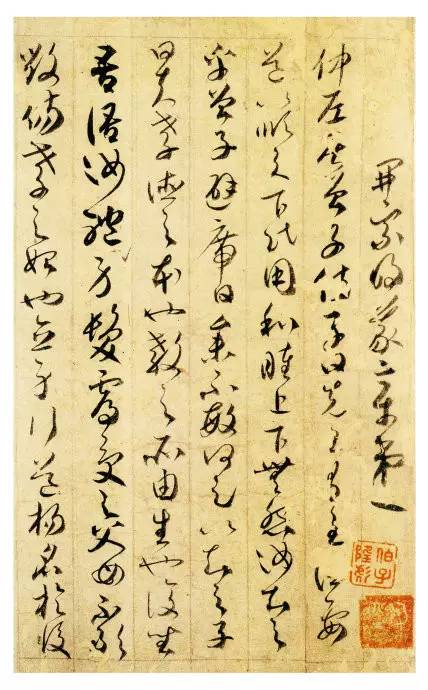 開宗明義章第一
仲尼居曾子侍子曰先王有至德要
道以順天下民用和睦上下無怨汝知之
乎曾子避席曰參不敏何足以知之子
曰夫孝德之本也教之所由生也復坐
吾語汝身體髮膚受之父母不敢
毀傷孝之始也立身行道揚名於後